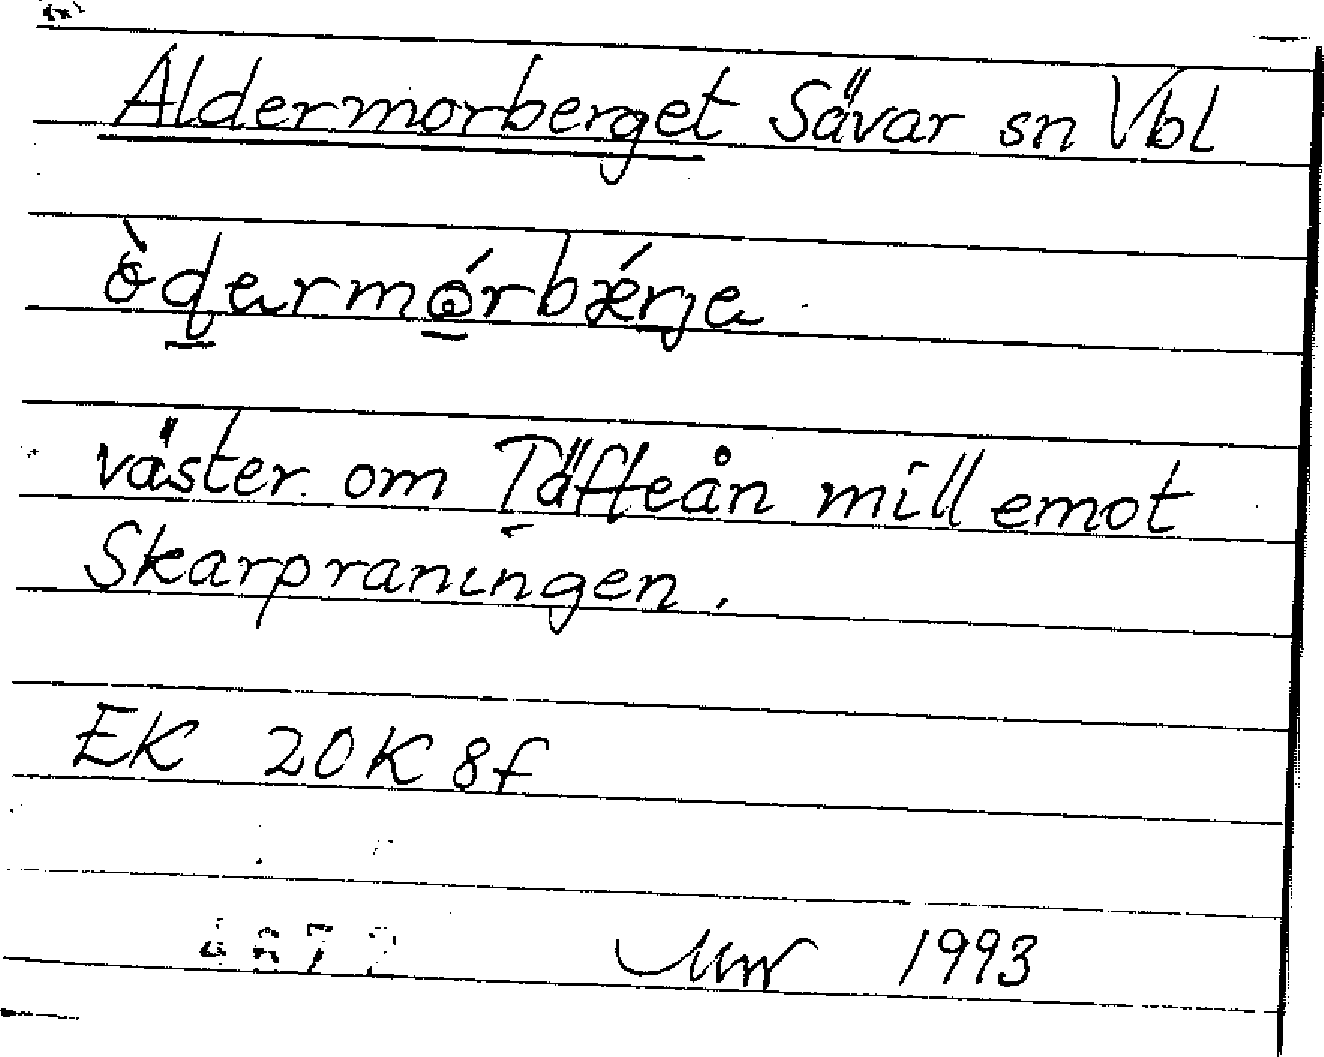 Aldermorberget Sävar sn Vbl
väster om Täfteån mill emot
Skarpraningen.
EK 20K 8f
1993